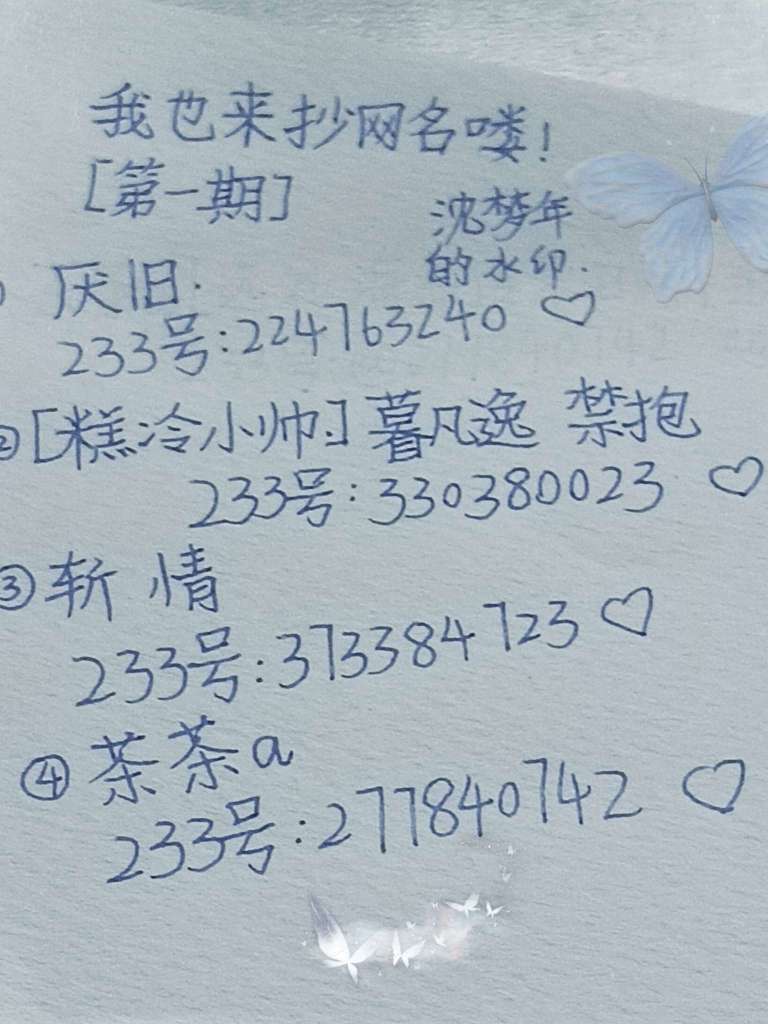 我也来抄网名喽!
[第一期]
沈梦年
的水印.
厌旧.
233号:224763240
②[糕冷小帅.] 暮凡逸 禁抱
233号:330380023
③斩 情
233号:373384723
④茶茶a
233号:277840742